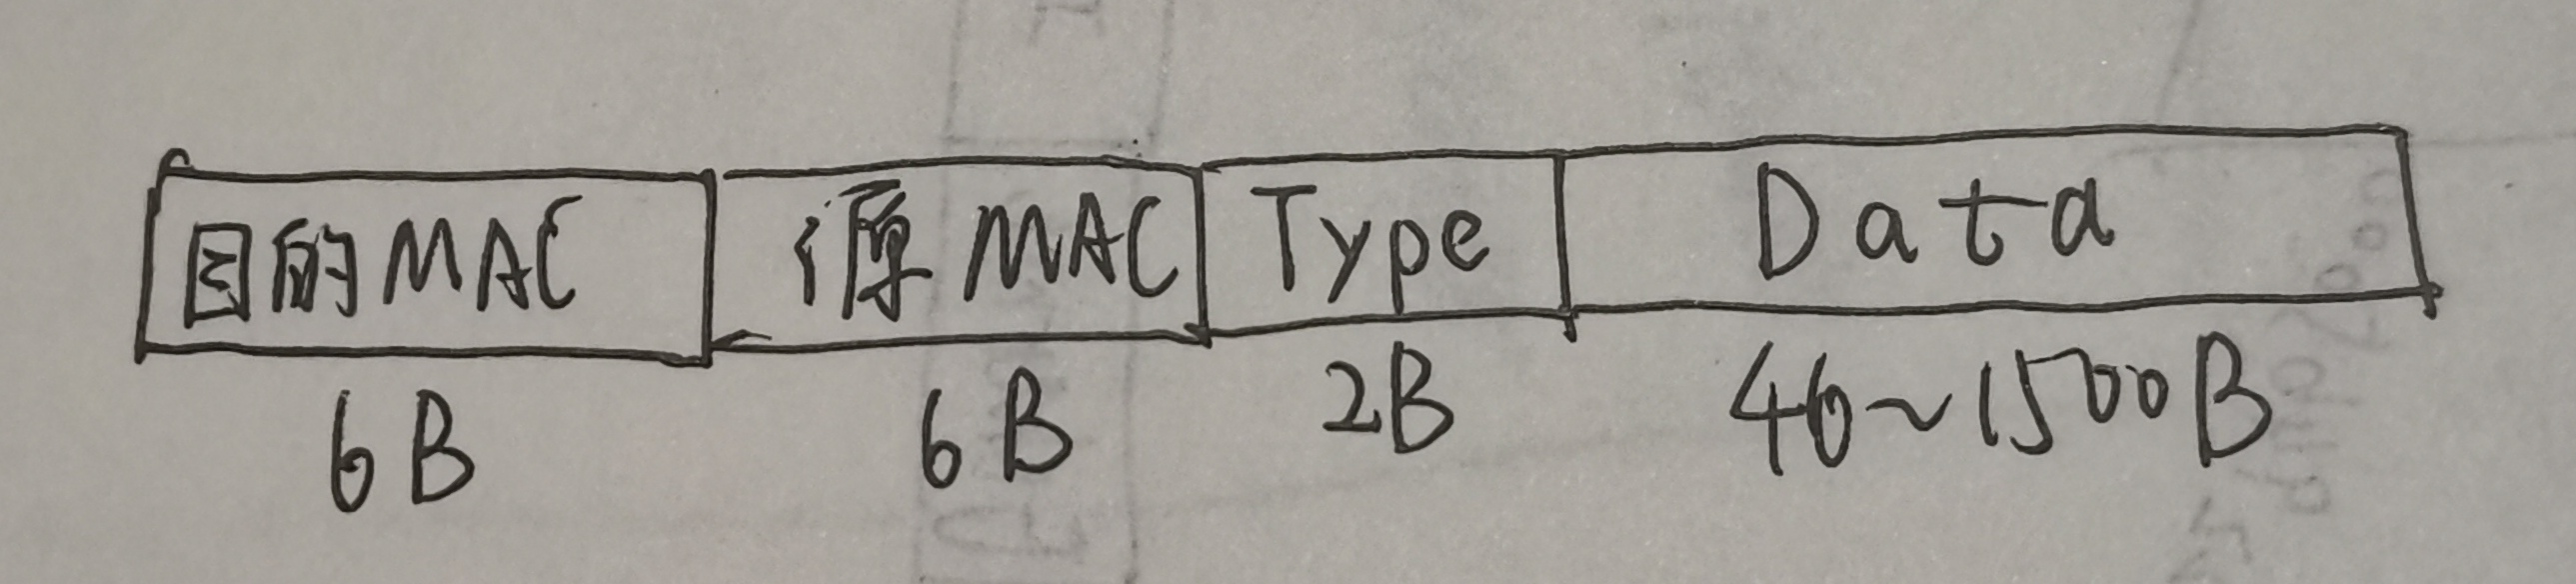 目的MAC 源MAC Type Data
6B 6B 2B 46~1500B